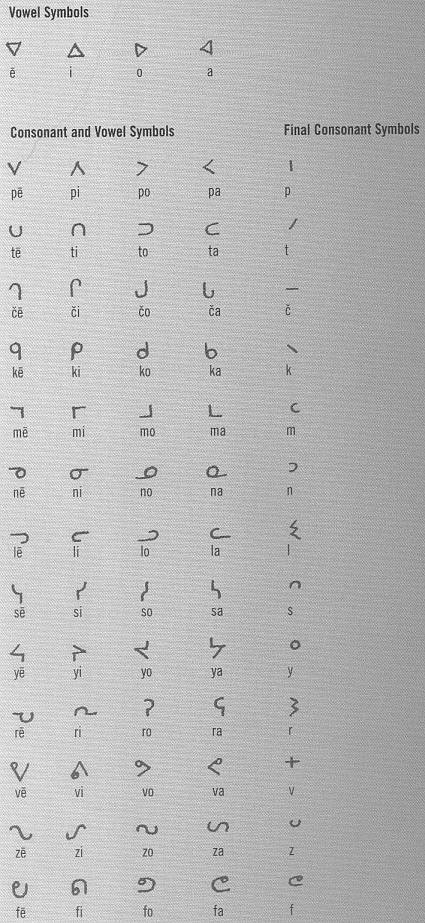 Vowel Symbols
ᐁ ᐃ ᐅ ᐊ
ē i o a
Consonant and Vowel Symbols Final Consonant Symbols
ᐯ ᐱ ᐳ ᐸ ᑊ
pē pi po pa p
ᑌ ᑎ ᑐ ᑕ ᐟ
tē ti to ta t
ᒉ ᒋ ᒍ ᒐ ᐨ
čē či čo ča č
ᑫ ᑭ ᑯ ᑲ ᐠ
kē ki ko ka k
ᒣ ᒥ ᒧ ᒪ ᒼ
mē mi mo ma m
ᓀ ᓂ ᓄ ᓇ ᐣ
nē ni no na n
ᓓ ᓕ ᓗ ᓚ ᓬ
lē li lo la l
ᓭ ᓯ ᓱ ᓴ ᐢ
sē si so sa s
ᔦ ᔨ ᔪ ᔭ ᐤ
yē yi yo ya y
ᕃ ᕆ ᕈ ᕋ ᕒ
rē ri ro ra r
ᕓ ᕕ ᕗ ᕙ ᐩ
vē vi vo va v
ᔐ ᔑ ᔓ ᔕ ᐡ
zē zi zo za z
ᕞ ᕠ ᕤ ᕦ ᕪ
fē fi fo fa f